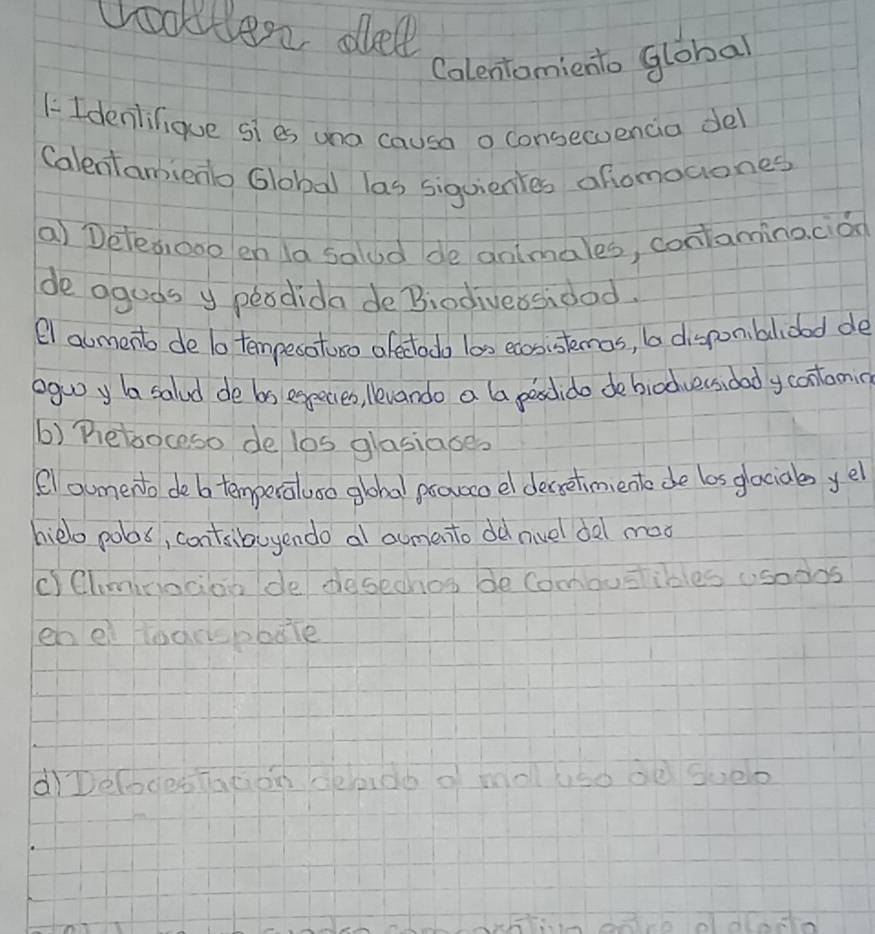 Calentamiento global
1- Identifique si es una causa o consecuencia del
Calentamiento Global las siguientes afirmaciones
a) Deterioro en la salud de animales, contaminación
de aguas y pérdida de Biodiversidad.
El aumento de la temperatura afectado los ecosistemas, la disponiblidad de
agua y la salud de los especies, llevando a la pérdida de biodiversidad y contamin
b) Retroceso de los glasiares
El aumento de la temperatura global provoca el decretimiento de los glaciales y el
hielo polar, contribuyendo al aumento del nivel del mar
c) Eliminación de desechos de combustibles usados
en el transporte
d) Deforestación debido al mal uso del suelo